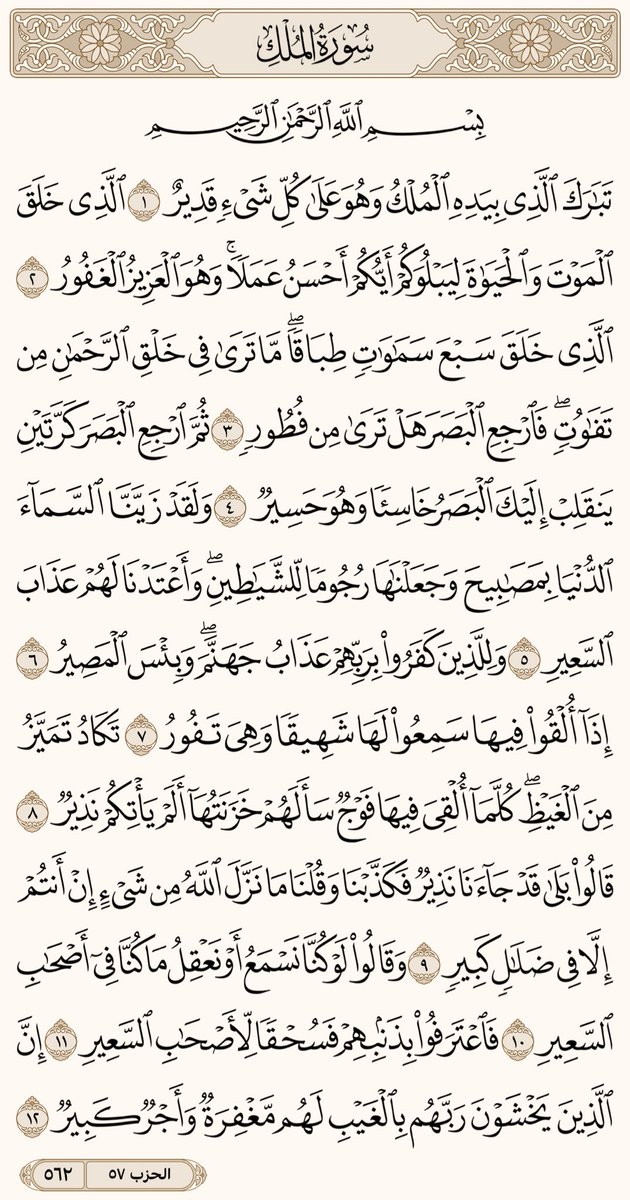 سُورَةُ المُلْكِ
بِسْمِ ٱللَّهِ ٱلرَّحْمَٰنِ ٱلرَّحِيمِ
تَبَٰرَكَ ٱلَّذِى بِيَدِهِ ٱلْمُلْكُ وَهُوَ عَلَىٰ كُلِّ شَىْءٍ قَدِيرٌ ١ ٱلَّذِى خَلَقَ
ٱلْمَوْتَ وَٱلْحَيَوٰةَ لِيَبْلُوَكُمْ أَيُّكُمْ أَحْسَنُ عَمَلًا ۚ وَهُوَ ٱلْعَزِيزُ ٱلْغَفُورُ ٢
ٱلَّذِى خَلَقَ سَبْعَ سَمَٰوَٰتٍ طِبَاقًا ۖ مَّا تَرَىٰ فِى خَلْقِ ٱلرَّحْمَٰنِ مِن
تَفَٰوُتٍ ۖ فَٱرْجِعِ ٱلْبَصَرَ هَلْ تَرَىٰ مِن فُطُورٍ ٣ ثُمَّ ٱرْجِعِ ٱلْبَصَرَ كَرَّتَيْنِ
يَنقَلِبْ إِلَيْكَ ٱلْبَصَرُ خَاسِئًا وَهُوَ حَسِيرٌ ٤ وَلَقَدْ زَيَّنَّا ٱلسَّمَآءَ
ٱلدُّنْيَا بِمَصَٰبِيحَ وَجَعَلْنَٰهَا رُجُومًا لِّلشَّيَٰطِينِ ۖ وَأَعْتَدْنَا لَهُمْ عَذَابَ
ٱلسَّعِيرِ ٥ وَلِلَّذِينَ كَفَرُوا۟ بِرَبِّهِمْ عَذَابُ جَهَنَّمَ ۖ وَبِئْسَ ٱلْمَصِيرُ ٦
إِذَآ أُلْقُوا۟ فِيهَا سَمِعُوا۟ لَهَا شَهِيقًا وَهِىَ تَفُورُ ٧ تَكَادُ تَمَيَّزُ
مِنَ ٱلْغَيْظِ ۖ كُلَّمَآ أُلْقِىَ فِيهَا فَوْجٌ سَأَلَهُمْ خَزَنَتُهَآ أَلَمْ يَأْتِكُمْ نَذِيرٌ ٨
قَالُوا۟ بَلَىٰ قَدْ جَآءَنَا نَذِيرٌ فَكَذَّبْنَا وَقُلْنَا مَا نَزَّلَ ٱللَّهُ مِن شَىْءٍ إِنْ أَنتُمْ
إِلَّا فِى ضَلَٰلٍ كَبِيرٍ ٩ وَقَالُوا۟ لَوْ كُنَّا نَسْمَعُ أَوْ نَعْقِلُ مَا كُنَّا فِىٓ أَصْحَٰبِ
ٱلسَّعِيرِ ١٠ فَٱعْتَرَفُوا۟ بِذَنۢبِهِمْ فَسُحْقًا لِّأَصْحَٰبِ ٱلسَّعِيرِ ١١ إِنَّ
ٱلَّذِينَ يَخْشَوْنَ رَبَّهُم بِٱلْغَيْبِ لَهُم مَّغْفِرَةٌ وَأَجْرٌ كَبِيرٌ ١٢
الحزب ٥٧ ٥٦٢